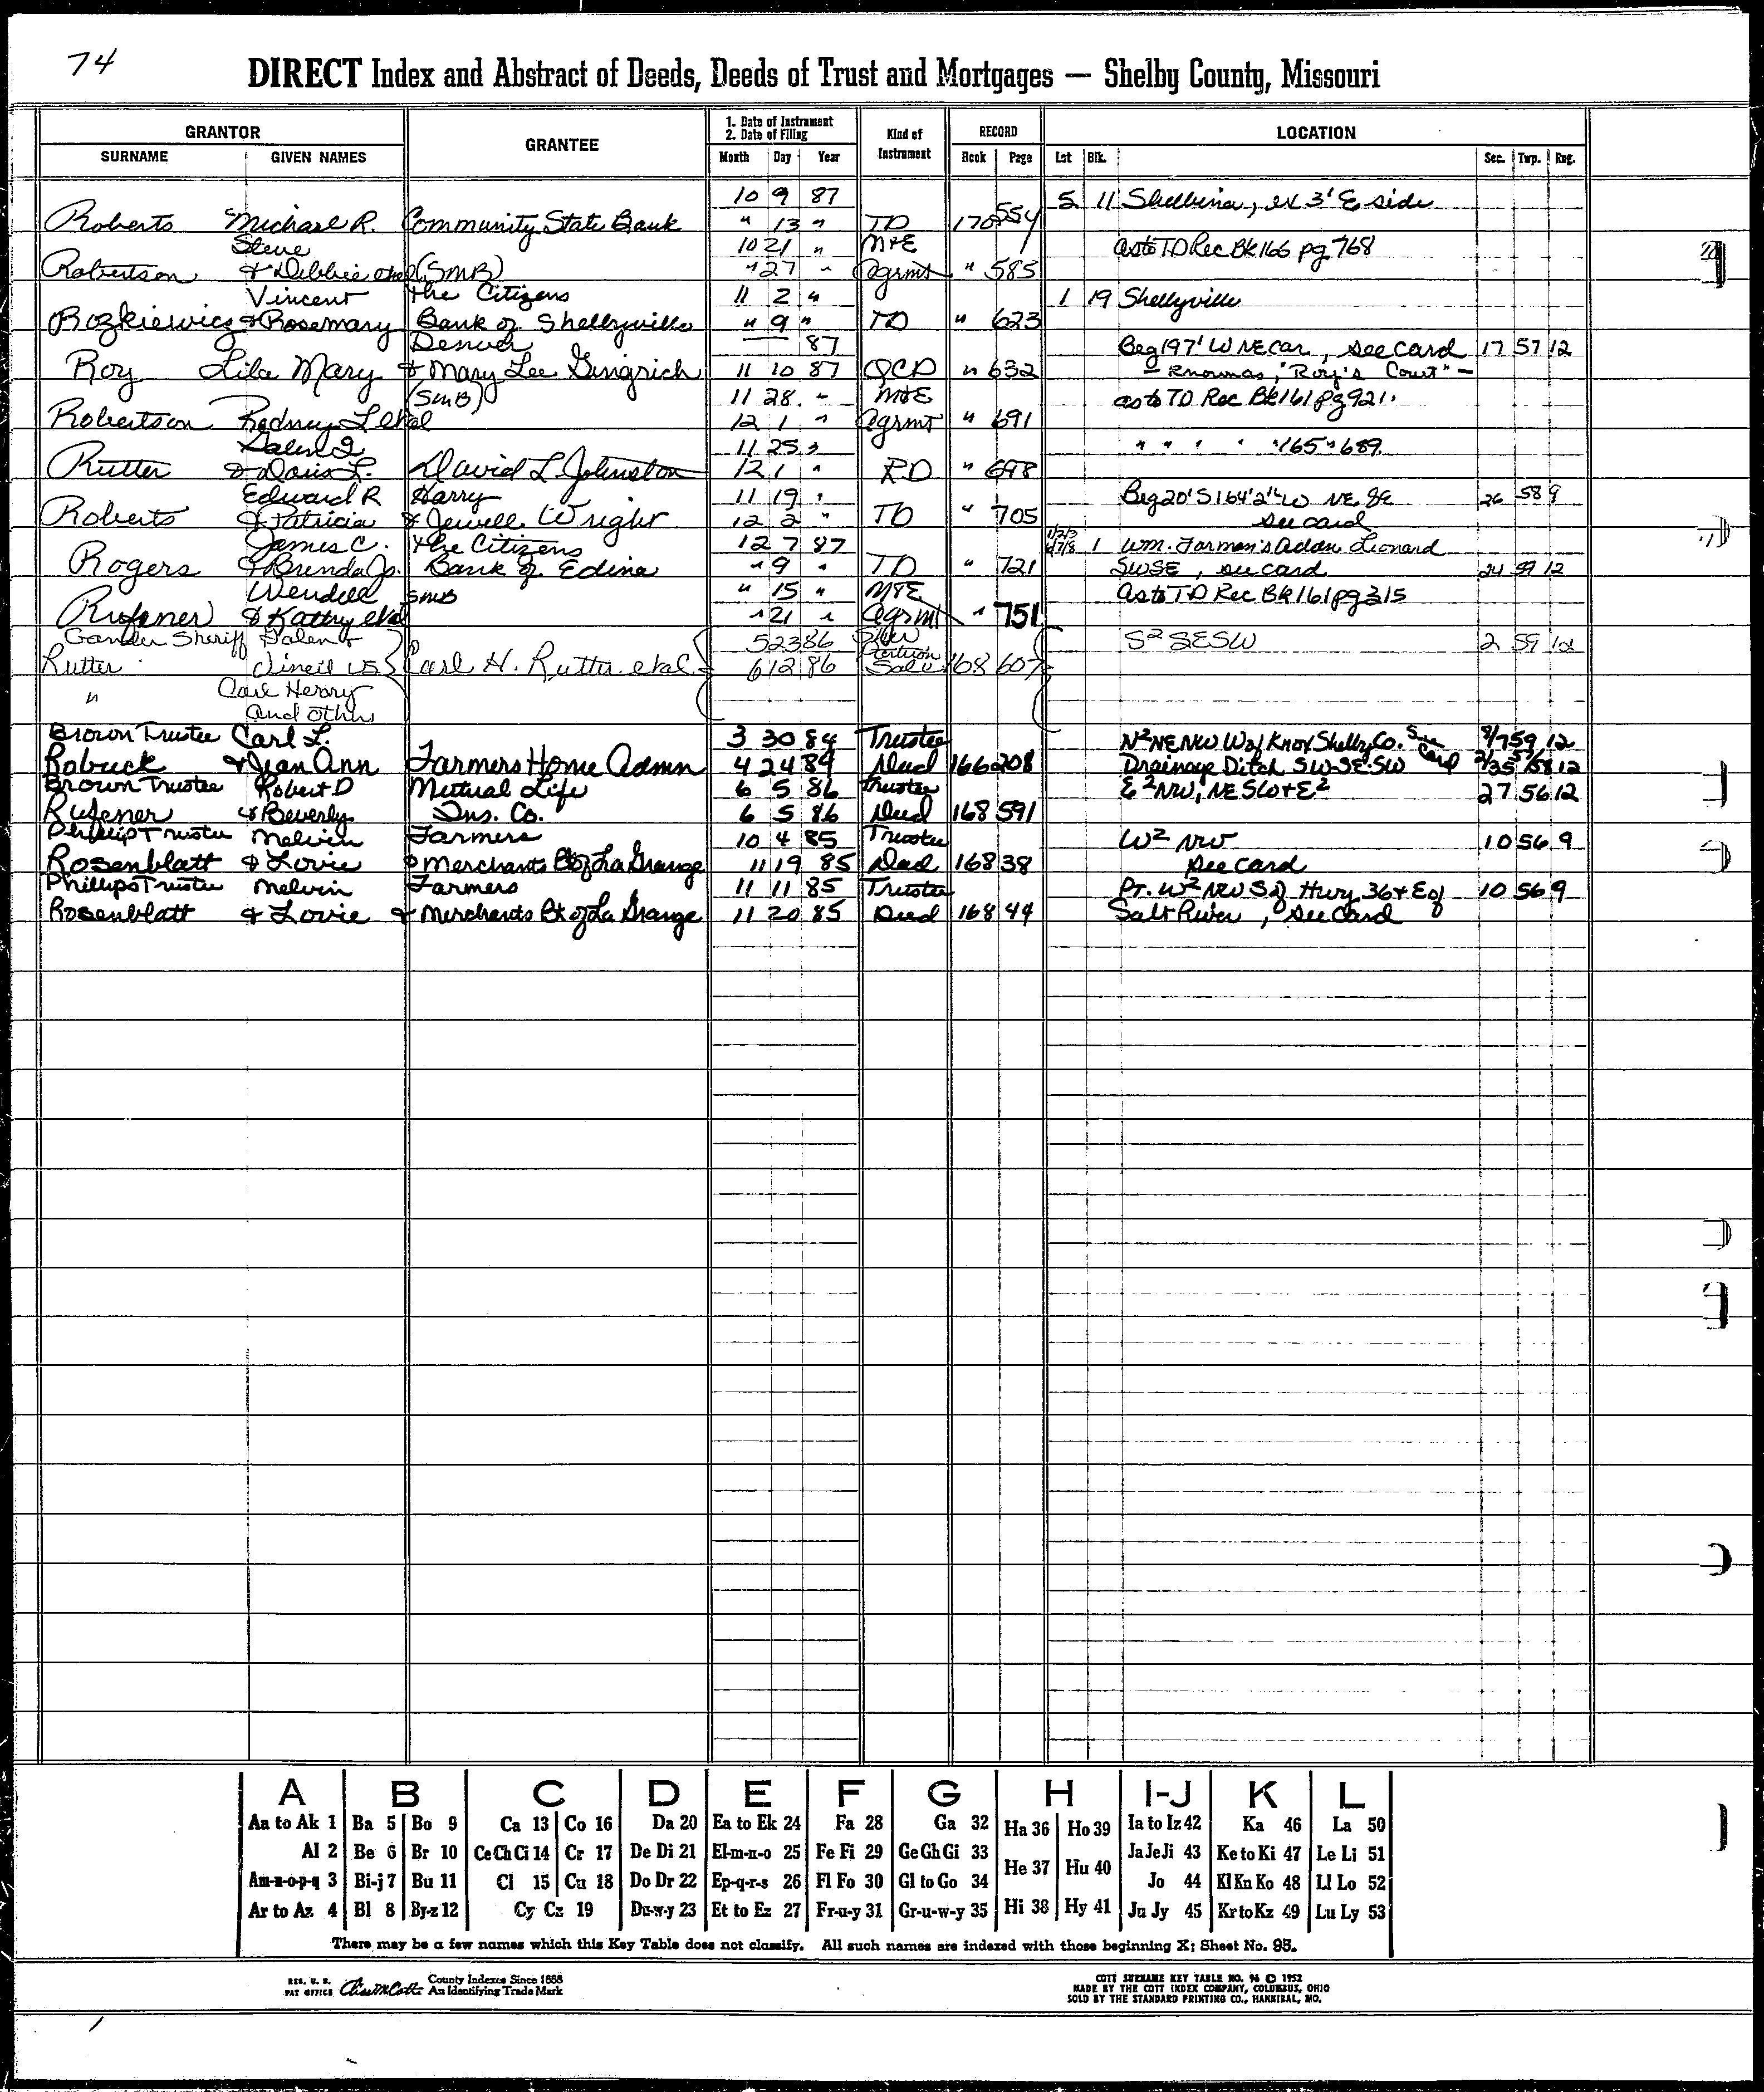 74
DIRECT Index and Abstract of Deeds, Deeds of Trust and Mortgages — Shelby County, Missouri
GRANTOR
SURNAME GIVEN NAMES
GRANTEE
1. Date of Instrument
2. Date of Filing
Month Day Year
Kind of Instrument
RECORD
Book Page
LOCATION
Lot Blk. Sec. Twp. Rng.
10 9 87 5 11 Shelbina, ex 3' E side
Roberts Michael R. Community State Bank " 13 " TD 170 554
Steve 10 21 " M&E as to TD Rec Bk 166 pg 768
Robertson & Debbie etal (SMB) " 27 " Agrmt " 585
Vincent the Citizens 11 2 " 1 19 Shelbyville
Rozkiewicz & Rosemary Bank of Shelbyville " 9 " TD " 623
Denver — 87 Beg 197' W NE Cor, see card 17 57 12
Roy Lila Mary & Mary Lee Gingrich 11 10 87 QCD " 632 — Known as, "Roy's Court" —
(SMB) 11 28 " M&E as to TD Rec Bk 161 pg 921.
Robertson Rodney L etal 12 1 " Agrmt " 691
Galen I 11 25 " " " " " " 165 " 689
Rutter & Doris L. David L Johnston 12 1 " RD " 698
Edward R Harry 11 19 " Beg 20' S 164'2" W NE SE 26 58 9
Roberts & Patricia & Jewell Wright 12 2 " TD " 705 see card
James C. the Citizens 12 7 87 1/2/3 6/7/8 1 Wm. Farman's Addn Leonard
Rogers & Brenda Jo. Bank of Edina " 9 " TD " 721 SWSE, see card 24 59 12
Wendell SMB " 15 " M&E as to TD Rec Bk 161 pg 315
Rufener & Kathy etal " 21 " Agrmt " 751
Gander Sheriff Galen & 5 23 86 S² SESW 2 59 12
Rutter vs Carl H. Rutter etal 6 12 86 Partition Sale 168 607
" Carl Henry
and others
Brown Trustee Carl L. 3 30 84 Trustee N² NE NW W of Knox Shelby Co. See Card 8/7 59 12
Robuck & Jean Ann Farmers Home Admn 4 24 84 Deed 166 208 Drainage Ditch SW-SE-SW 12
Brown Trustee Robert D Mutual Life 6 5 86 Trustee E² NW; NE SW & E² 27 56 12
Rufener & Beverly Ins. Co. 6 5 86 Deed 168 591
Phillips Trustee Melvin Farmers 10 4 85 Trustee W² NW 10 56 9
Rosenblatt & Lovie & Merchants Bk of La Grange 11 19 85 Deed 168 38 see card
Phillips Trustee Melvin Farmers 11 11 85 Trustee Pt. W² NW S of Hwy 36 & E of 10 56 9
Rosenblatt & Lovie & Merchants Bk of La Grange 11 20 85 Deed 168 44 Salt River, see card
A B C D E F G H I-J K L
Aa to Ak 1 Ba 5 Bo 9 Ca 13 Co 16 Da 20 Ea to Ek 24 Fa 28 Ga 32 Ha 36 Ho 39 Ia to Iz 42 Ka 46 La 50
Al 2 Be 6 Br 10 Ce Ch Ci 14 Cr 17 De Di 21 El-m-n-o 25 Fe Fi 29 Ge Gh Gi 33 He 37 Hu 40 Ja Je Ji 43 Ke to Ki 47 Le Li 51
Am-n-o-p-q 3 Bi-j 7 Bu 11 Cl 15 Cu 18 Do Dr 22 Ep-q-r-s 26 Fl Fo 30 Gl to Go 34 Jo 44 Kl Kn Ko 48 Ll Lo 52
Ar to Az 4 Bl 8 By-z 12 Cy Cz 19 Du-w-y 23 Et to Ez 27 Fr-u-y 31 Gr-u-w-y 35 Hi 38 Hy 41 Ju Jy 45 Kr to Kz 49 Lu Ly 53
There may be a few names which this Key Table does not classify. All such names are indexed with those beginning X; Sheet No. 95.
REG. U. S. PAT OFFICE County Indexes Since 1888
An Identifying Trade Mark
COTT SURNAME KEY TABLE NO. 96 © 1952
MADE BY THE COTT INDEX COMPANY, COLUMBUS, OHIO
SOLD BY THE STANDARD PRINTING CO., HANNIBAL, MO.